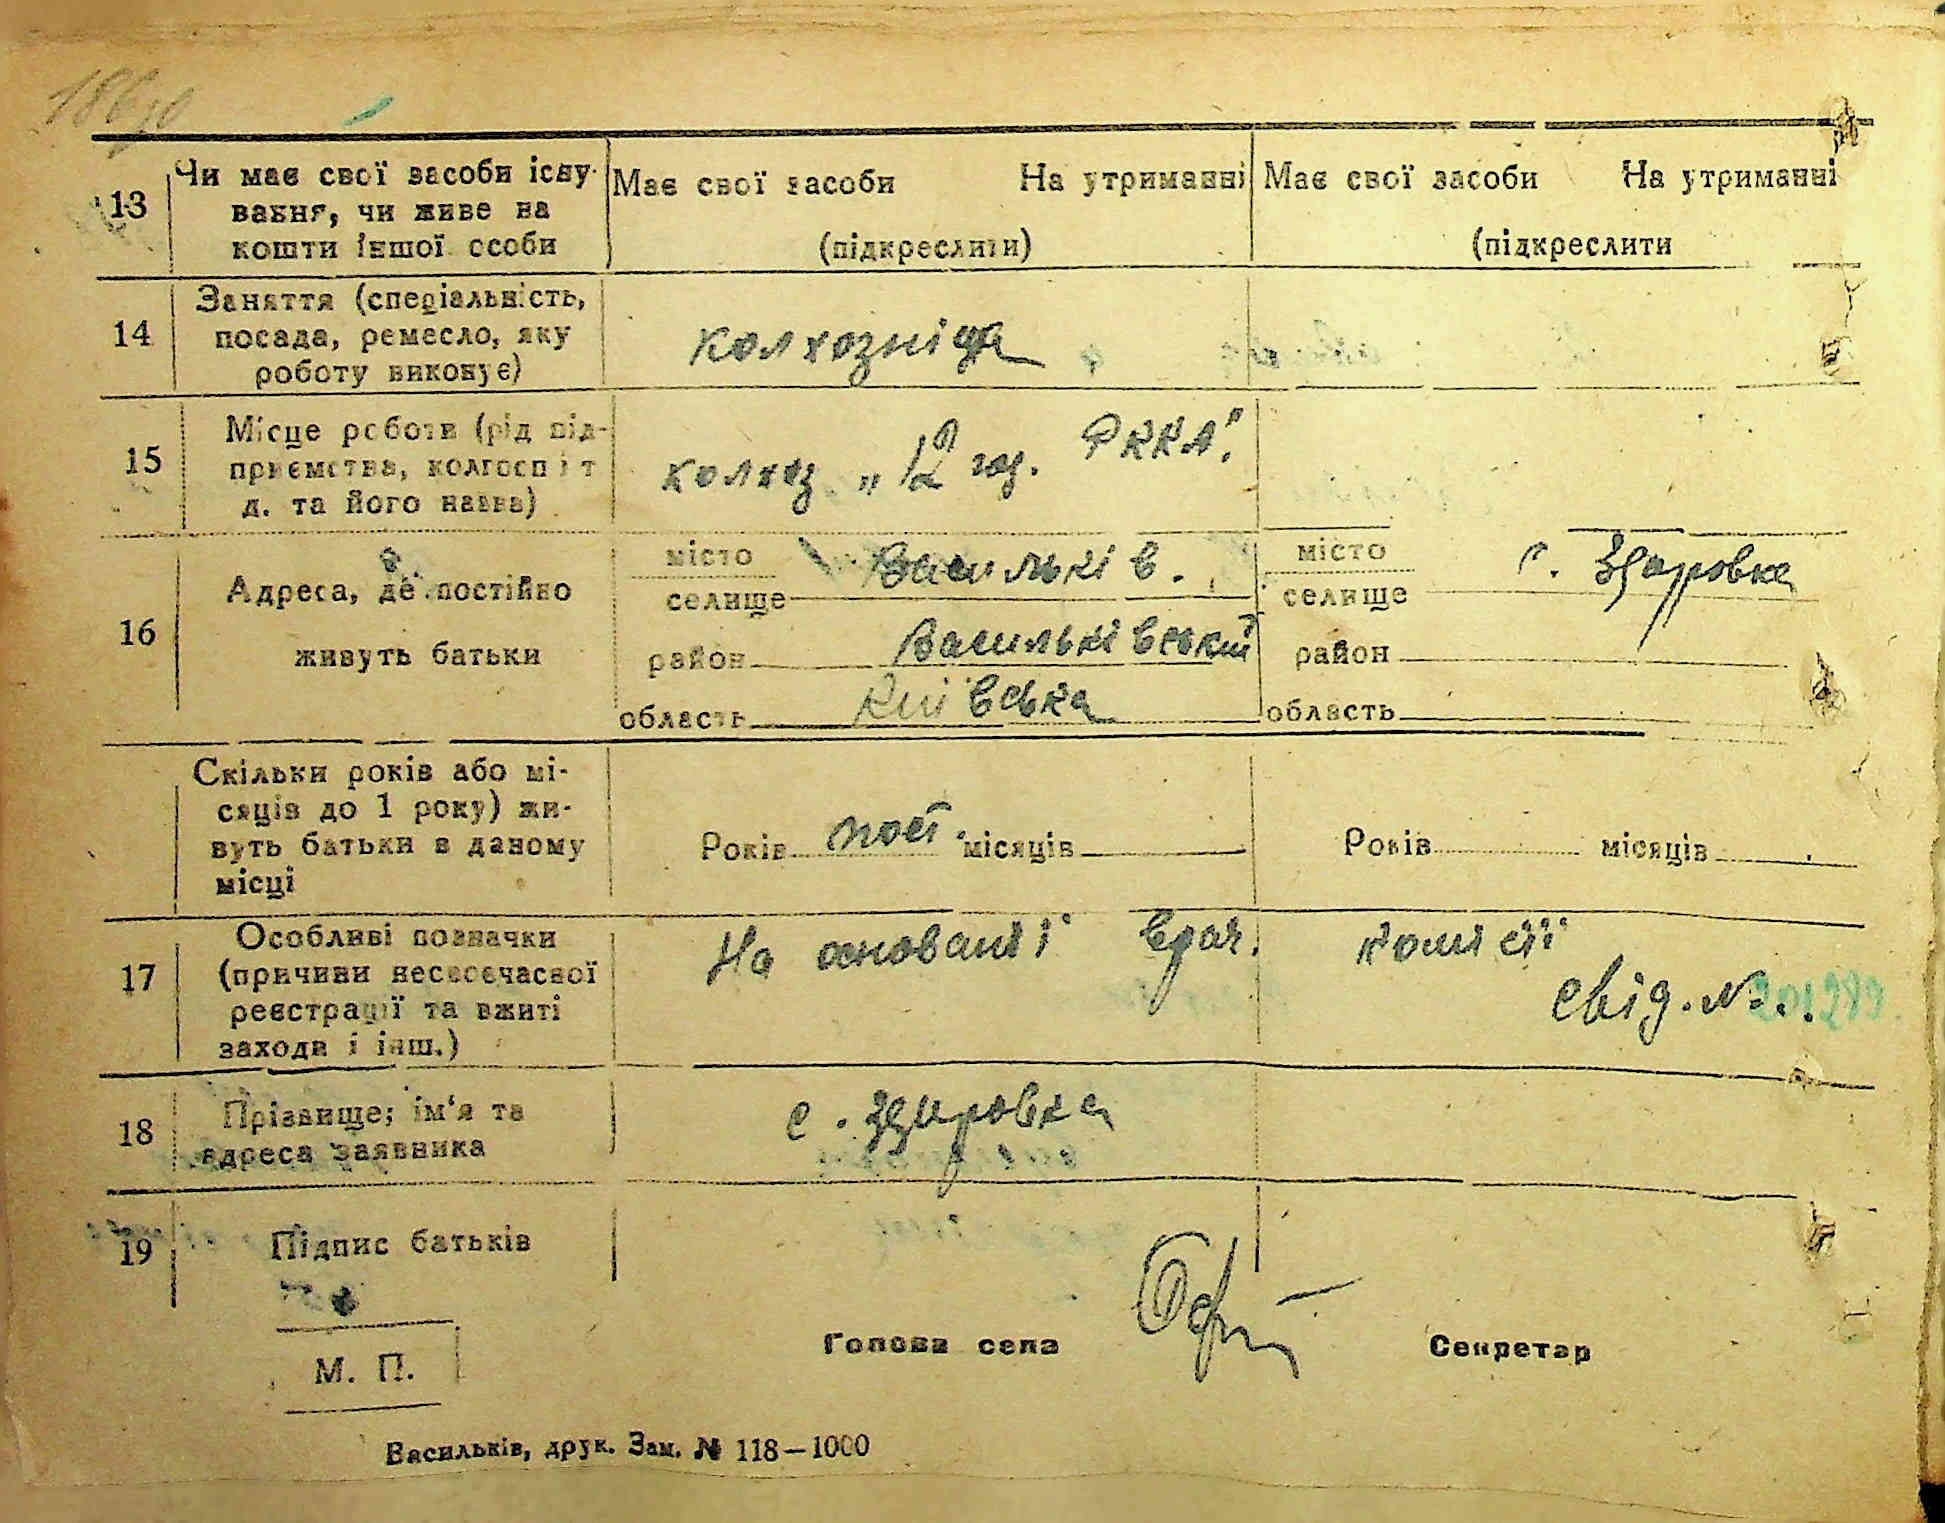 13 Чи має свої засоби існу-
вання, чи живе на
кошти іншої особи
Має свої засоби На утриманні
(підкреслити)
Має свої засоби На утриманні
(підкреслити
14 Заняття (спеціальність,
посада, ремесло, яку
роботу виконує)
колхозніца
15 Місце роботи (рід під-
приємства, колгосп і т
д. та його назва)
колхоз „12 год. РККА".
16 Адреса, де постійно
живуть батьки
місто Васильків.
селище
район Васильківський
область Київська
місто с. Здоровка
селище
район
область
Скільки років або мі-
сяців до 1 року) жи-
вуть батьки в даному
місці
Років пост. місяців
Років місяців
17 Особливі позначки
(причини несвоєчасної
реєстрації та вжиті
заходи і інш.)
На основанії врач. комісії
свід. № 201289
18 Прізвище, ім'я та
адреса заявника
с. Здоровка
19 Підпис батьків
М. П.
Голова села Секретар
Васильків, друк. Зам. № 118—1000